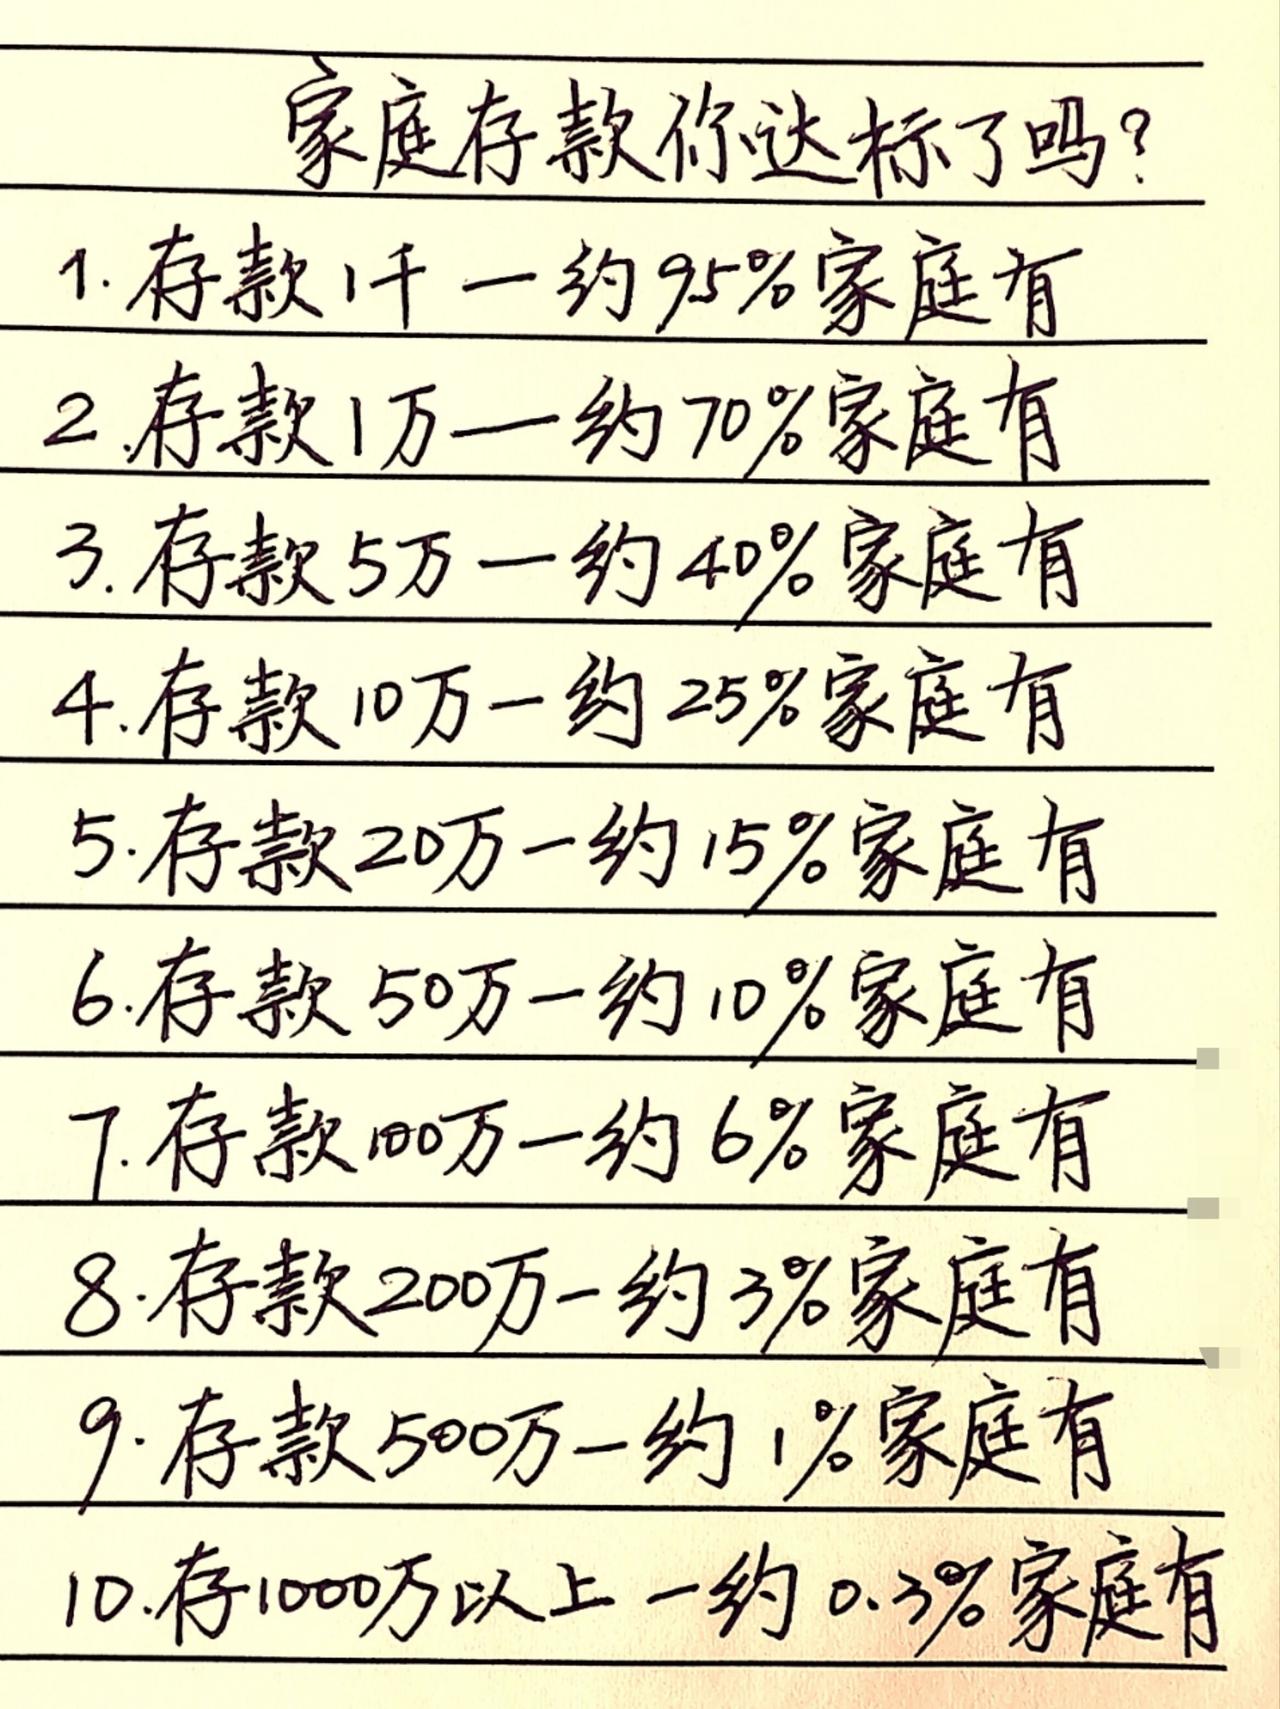 家庭存款你达标了吗?
1.存款1千一约95%家庭有
2.存款1万一约70%家庭有
3.存款5万一约40%家庭有
4.存款10万一约25%家庭有
5.存款20万一约15%家庭有
6.存款50万一约10%家庭有
7.存款100万一约6%家庭有
8.存款200万一约3%家庭有
9.存款500万一约1%家庭有
10.存1000万以上一约0.3%家庭有